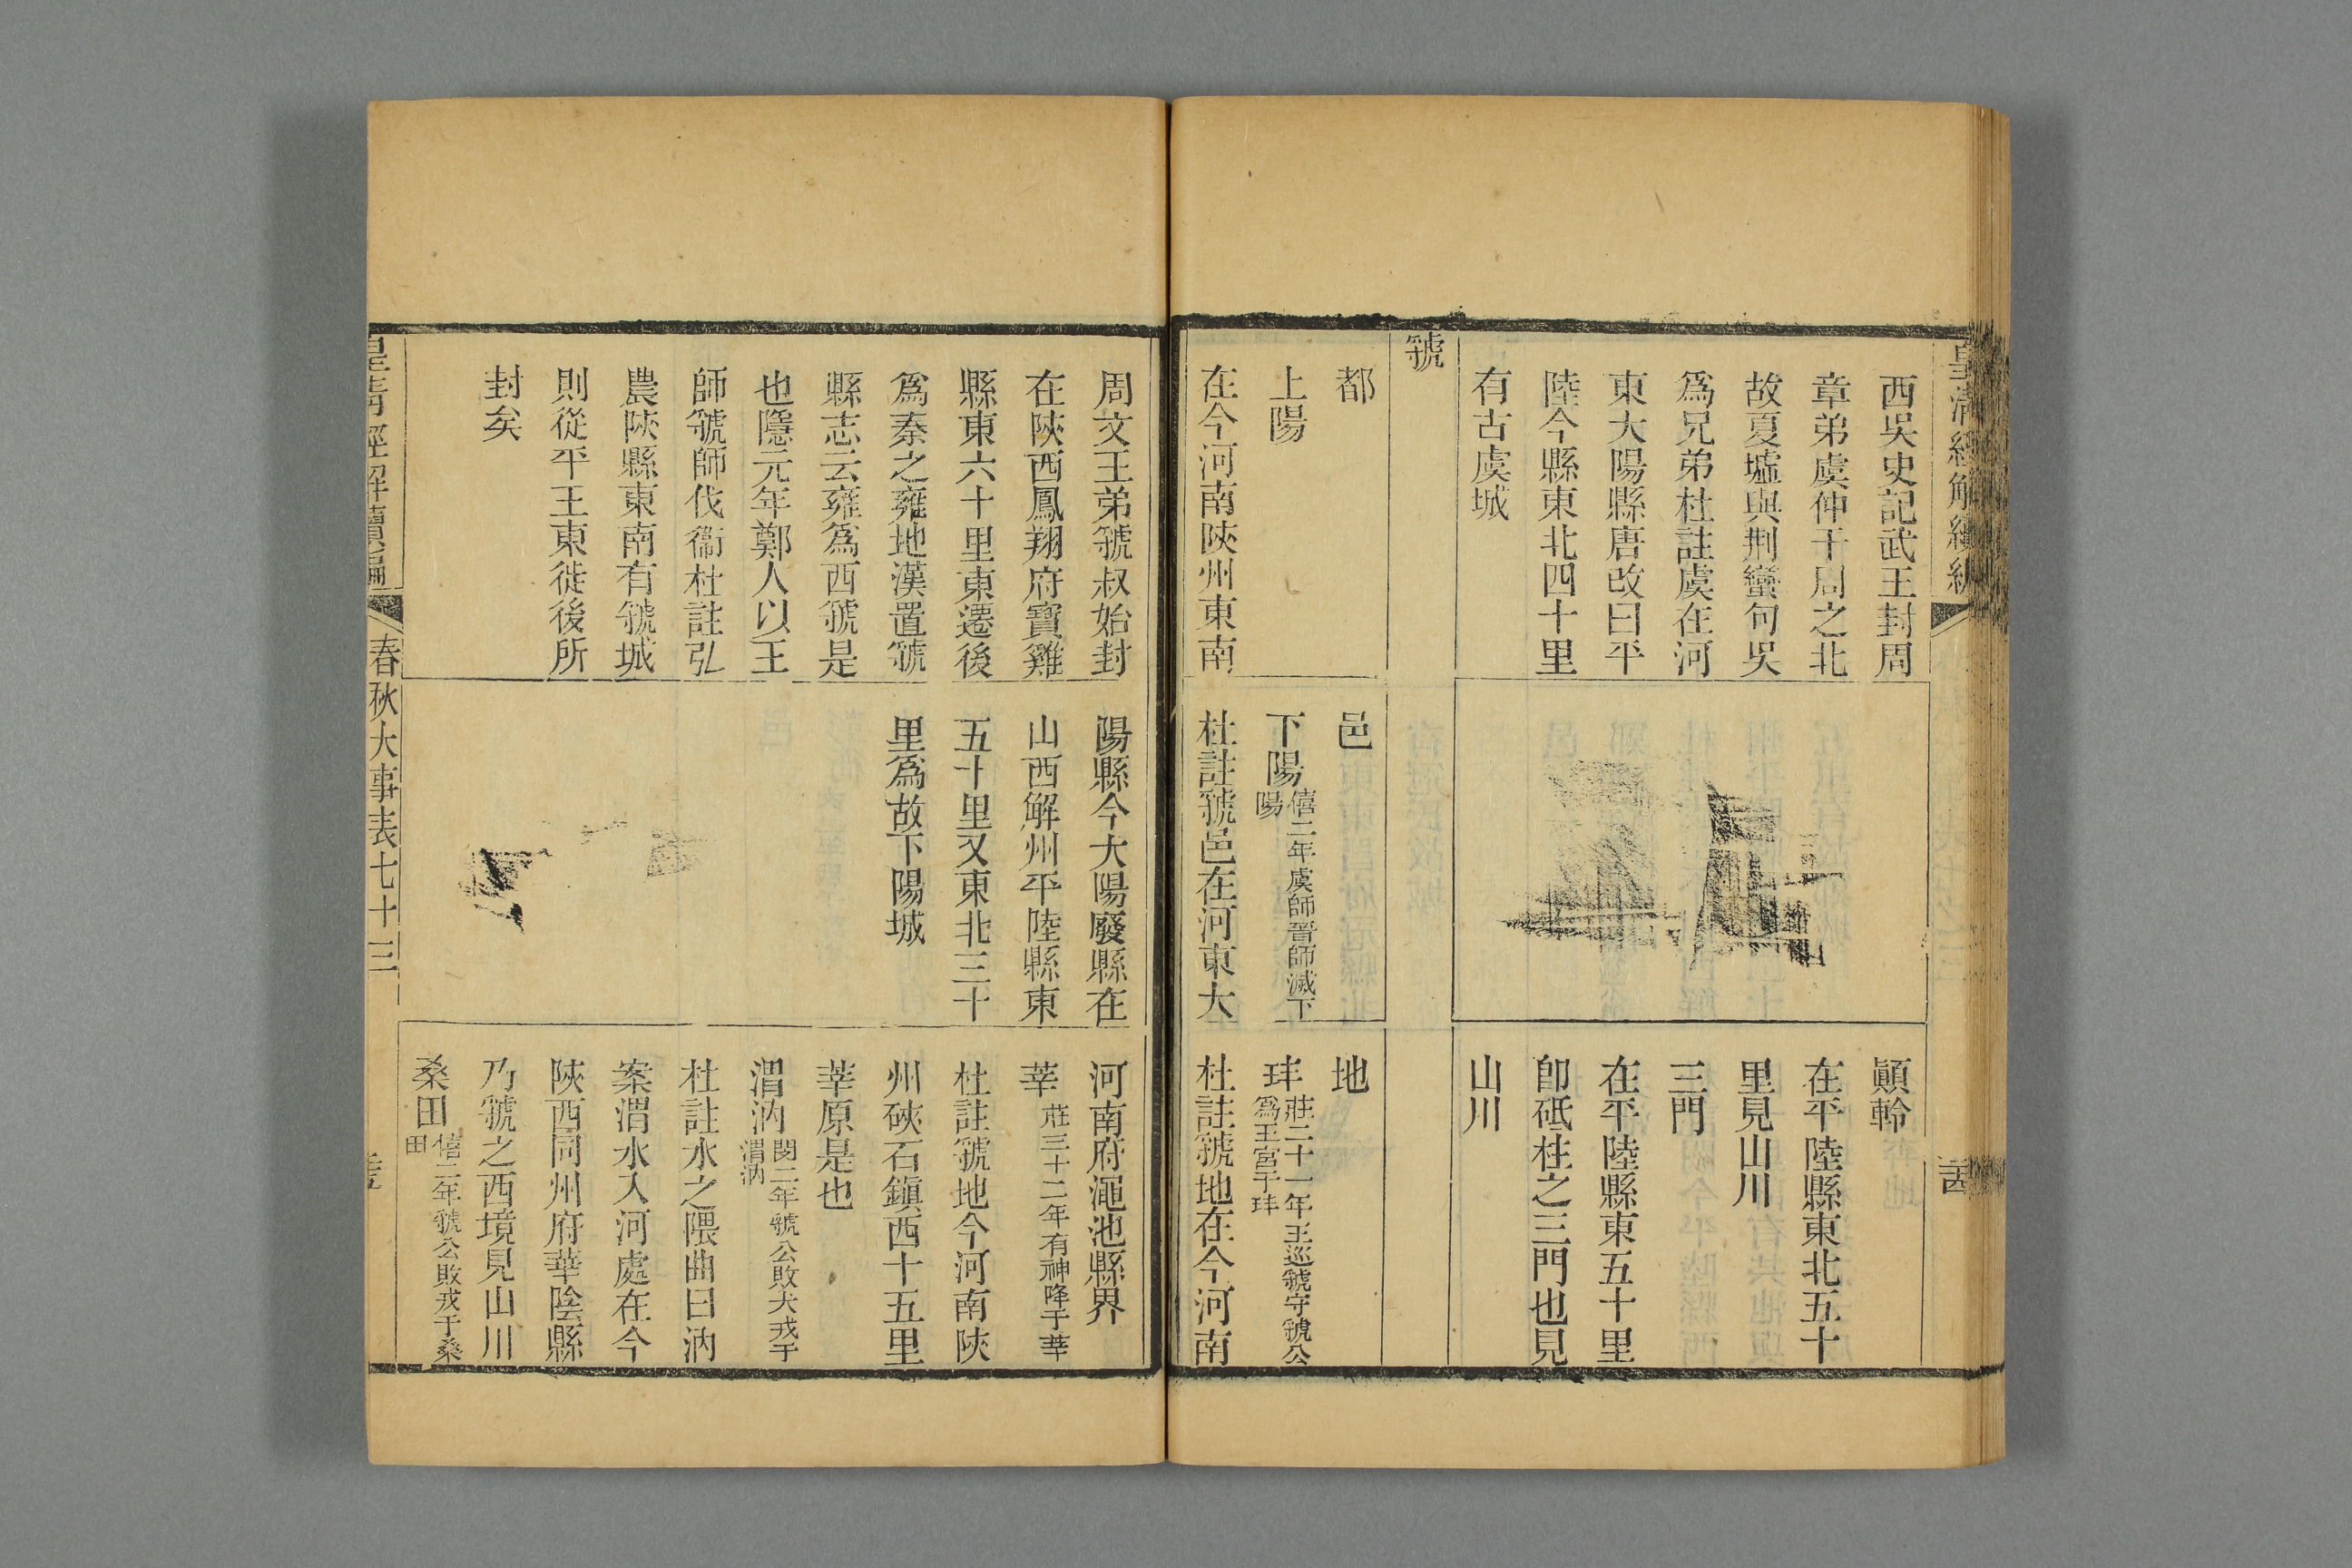 皇清經解續編
西吳史記武王封周
章弟虞仲于周之北
故夏墟與荆蠻句吳
爲兄弟杜註虞在河
東大陽縣唐改曰平
陸今縣東北四十里
有古虞城
顚軨
在平陸縣東北五十
里見山川
三門
在平陸縣東五十里
卽砥柱之三門也見
山川
虢
都
上陽
在今河南陝州東南
邑
下陽僖二年虞師晉師滅下
陽
杜註虢邑在河東大
地
玤莊二十一年王巡虢守虢公
爲王宮于玤
杜註虢地在今河南
周文王弟虢叔始封
在陝西鳳翔府寶雞
縣東六十里東遷後
爲秦之雍地漢置虢
縣志云雍爲西虢是
也隱元年鄭人以王
師虢師伐衞杜註弘
農陝縣東南有虢城
則從平王東徙後所
封矣
陽縣今大陽廢縣在
山西解州平陸縣東
五十里又東北三十
里爲故下陽城
河南府澠池縣界
莘莊三十二年有神降于莘
杜註虢地今河南陝
州硤石鎮西十五里
莘原是也
渭汭閔二年虢公敗犬戎于
渭汭
杜註水之隈曲曰汭
案渭水入河處在今
陝西同州府華陰縣
乃虢之西境見山川
桑田僖二年虢公敗戎于桑
田
皇清經解續編
春秋大事表七十三